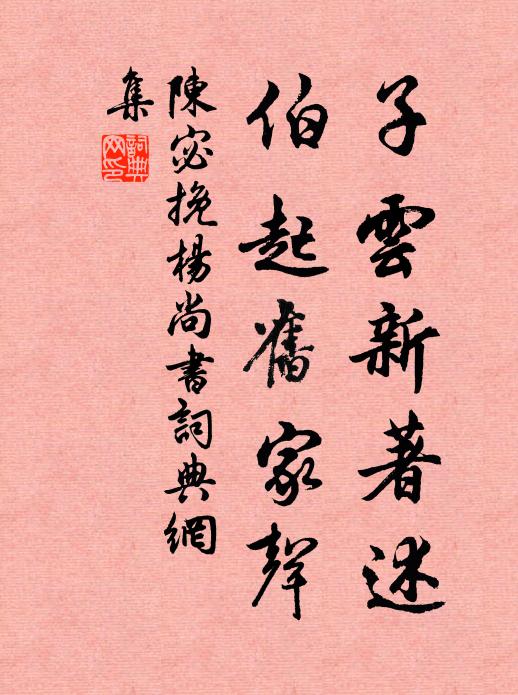 子雲新著述
伯起舊家聲
陳宓挽楊尚書詞典網
集
詞典
网印